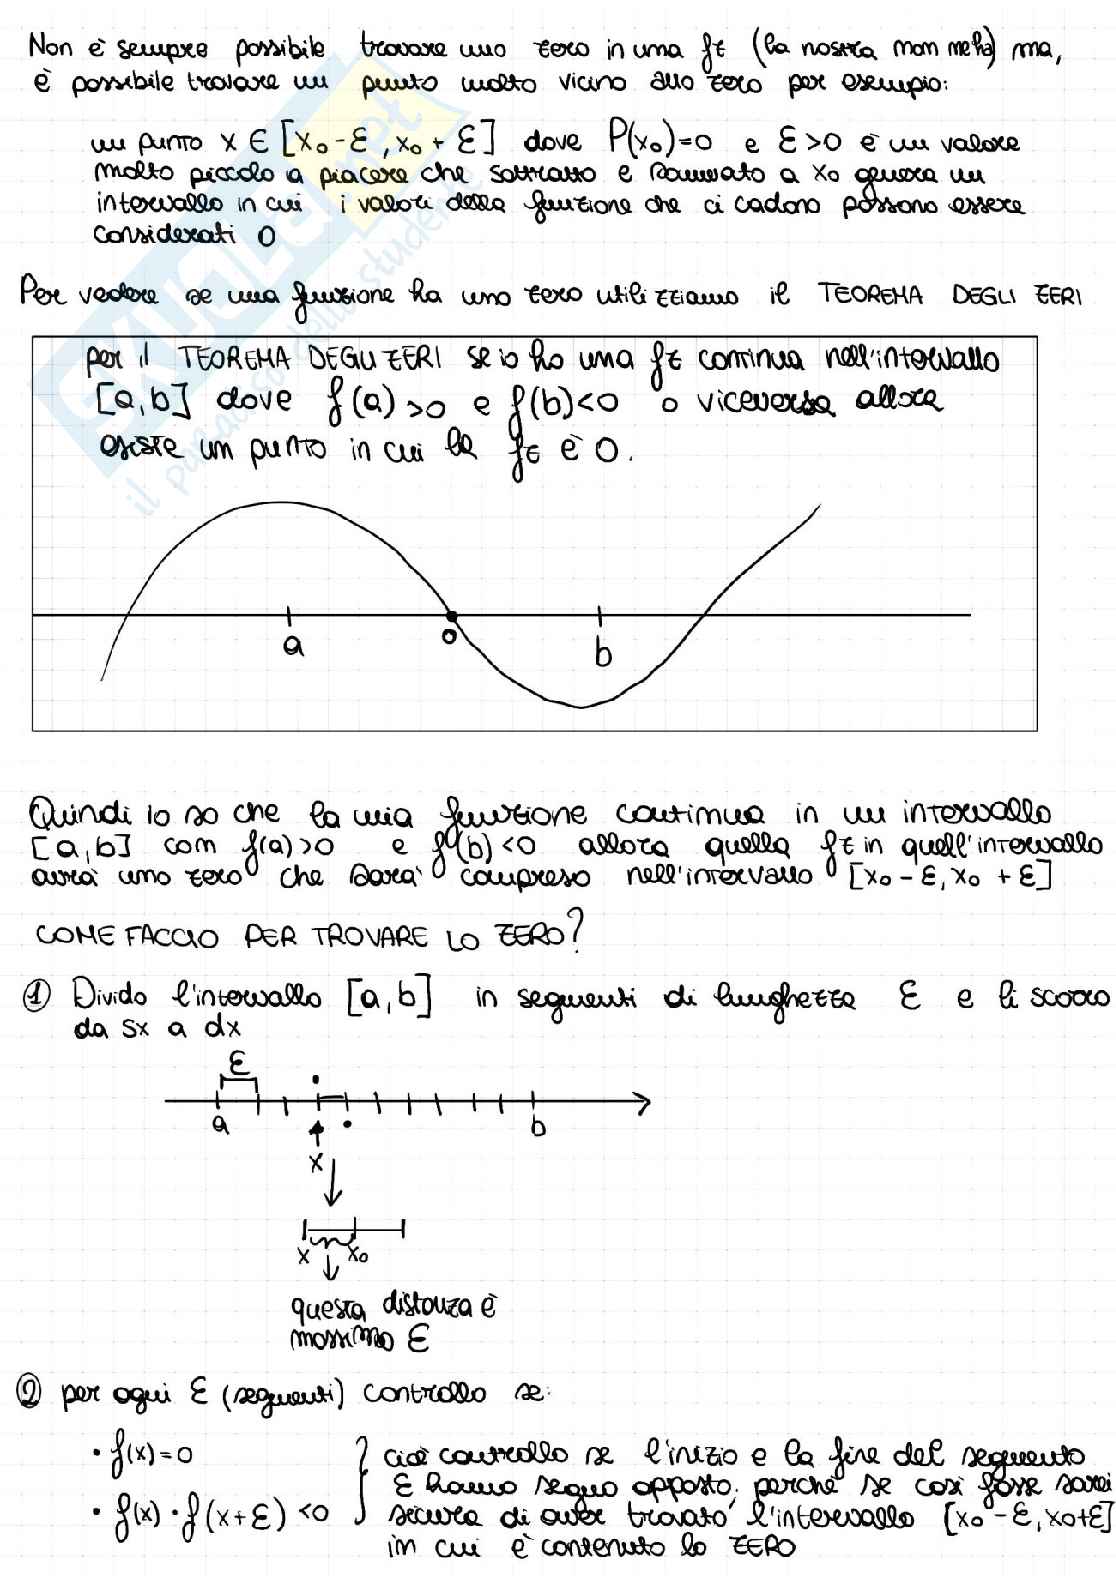 Non è sempre possibile trovare uno zero in una fz (la nostra non ne ha) ma,
è possibile trovare un punto molto vicino allo zero per esempio:
un punto x ∈ [x₀-ε, x₀+ε] dove P(x₀)=0 e ε>0 è un valore
molto piccolo a piacere che sottratto e sommato a x₀ genera un
intervallo in cui i valori della funzione che ci cadono possono essere
considerati 0
Per vedere se una funzione ha uno zero utilizziamo il TEOREMA DEGLI ZERI
per il TEOREMA DEGLI ZERI se io ho una fz continua nell'intervallo
[a,b] dove f(a)>0 e f(b)<0 o viceversa allora
esiste un punto in cui la fz è 0.
a
0
b
Quindi io so che la mia funzione continua in un intervallo
[a,b] con f(a)>0 e f(b)<0 allora quella fz in quell'intervallo
avrà uno zero che sarà compreso nell'intervallo [x₀-ε, x₀+ε]
COME FACCIO PER TROVARE LO ZERO?
① Divido l'intervallo [a,b] in segmenti di lunghezza ε e li scorro
da sx a dx
ε
a
b
x
x x₀
questa distanza è
massimo ε
② per ogni ε (segmenti) controllo se:
• f(x)=0
• f(x)·f(x+ε)<0
cioè controllo se l'inizio e la fine del segmento
ε hanno segno opposto, perché se così fosse sarei
sicura di aver trovato l'intervallo [x₀-ε, x₀+ε]
in cui è contenuto lo ZERO
SKUOLA.net
il paradiso dello studente